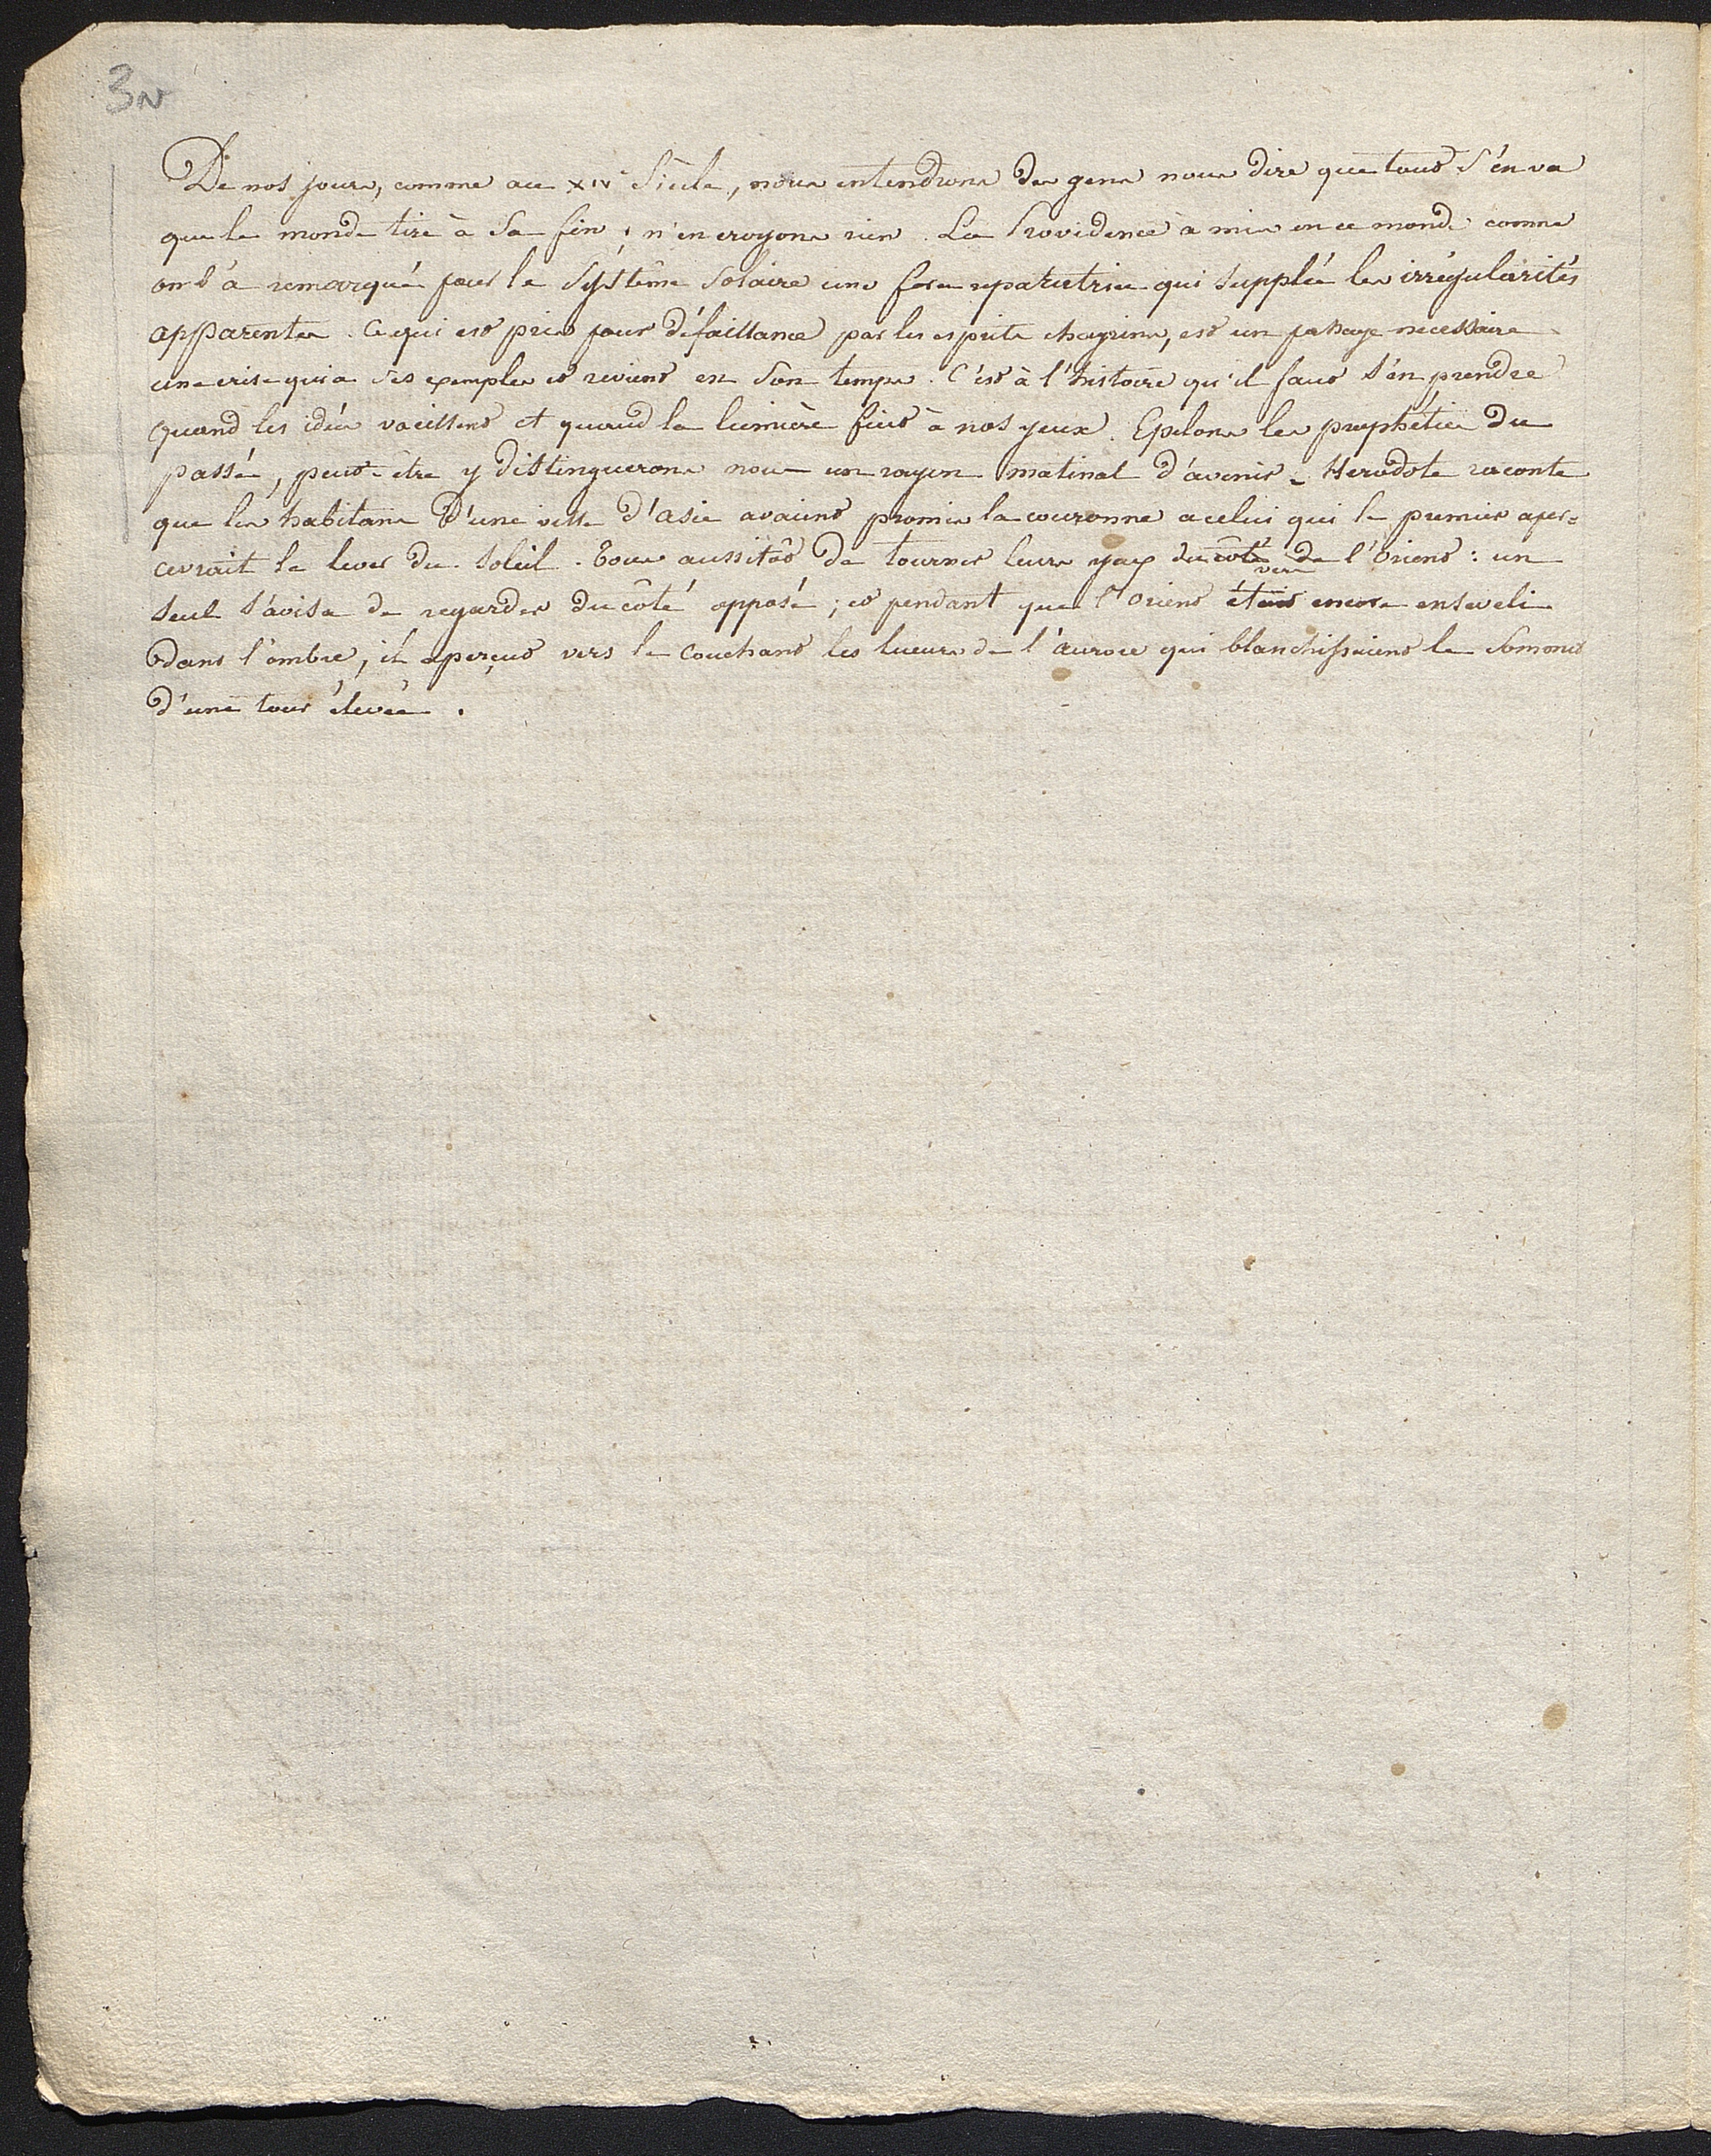 3v
De nos jours, comme au XIVe Siècle, nous entendrons des gens nous dire que tout s'en va
que le monde tire à sa fin ; n'en croyons rien. La Providence à mis en ce monde comme
on l'à remarqué pour le Système Solaire une force reparatrice qui supplée les irrégularités
apparentes. Ce qui est pris pour défaillance par les esprits chagrins, est un passage necessaire
une crise qui a ses exemples et revient en son temps. C'est à l'histoire qu'il faut s'en prendre
quand les idées vacillent et quand la lumière fuit à nos yeux. Epelons les prophéties du
passé, peut-être y distinguerons nous un rayon matinal d'avenir. Herodote raconte
que les habitans d'une ville d'asie avaient promis la couronne a celui qui le premier aper=
cevrait le lever du Soleil. Tous aussitôt de tourner leurs yeux du côté de l'Orient : un
vers
seul s'avisa de regarder du côté opposé ; et pendant que l'Orient était encore enseveli
dans l'ombre, il aperçut vers le Couchant les lueurs de l'aurore qui blanchissaient le Sommet
d'une tour élevée.